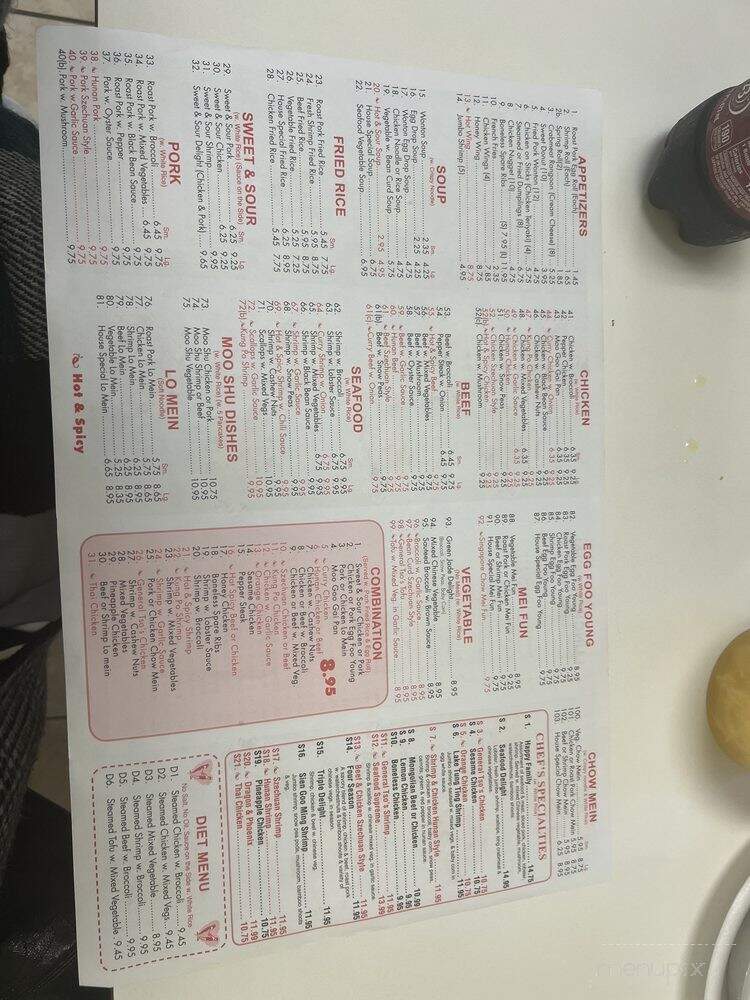 APPETIZERS
1. Roast Pork Egg Roll (Each) 1.45
2. Shrimp Roll (Each) 1.65
3. Crabmeat Rangoon (Cream Cheese) (8) 5.25
4. Sweet Donut (10) 3.95
5. Fried Pork Wonton (12) 4.75
6. Chicken on Sticks (Chicken Teriyaki) (4) 5.75
7. Steamed or Fried Dumplings (8)
8. Chicken Nugget (10)
9. Boneless Spare Ribs (S) 7.95 (L) 11.95
10. French Fries 2.35
11. Chicken Wings (4)
12. Honey Wing
13. Hot Wing 8.75
14. Jumbo Shrimp (5) 4.95
SOUP
(w. Crispy Noodles)
Sm. Lg.
15. Wonton Soup 2.35 4.25
16. Egg Drop Soup 2.25 4.25
17. Wonton Egg Drop Soup
18. Chicken Noodle or Rice Soup
19. Vegetable w. Bean Curd Soup
20. Hot & Sour Soup 2.95 4.95
21. House Special Soup 6.75
22. Seafood Vegetable Soup 6.95
FRIED RICE
Sm. Lg.
23. Roast Pork Fried Rice 5.45 7.75
24. Fresh Shrimp Fried Rice 5.95 8.75
25. Beef Fried Rice 5.95 8.75
26. Vegetable Fried Rice 5.25 7.25
27. House Special Fried Rice 6.25 8.95
28. Chicken Fried Rice 5.45 7.75
SWEET & SOUR
(w. White Rice) (Sauce on the Side)
Sm. Lg.
29. Sweet & Sour Pork 6.25 9.25
30. Sweet & Sour Chicken 6.25 9.25
31. Sweet & Sour Shrimp 9.95
32. Sweet & Sour Delight (Chicken & Pork) 9.65
PORK
(w. White Rice)
Sm. Lg.
33. Roast Pork w. Broccoli 6.45 9.75
34. Roast Pork w. Mixed Vegetables 6.45 9.75
35. Roast Pork w. Black Bean Sauce 9.75
36. Roast Pork w. Pepper 9.75
37. Pork w. Oyster Sauce 9.75
38. Hunan Pork 9.75
39. Pork Szechuan Style 9.75
40. Pork w. Garlic Sauce 9.75
40(b) Pork w. Mushroom 9.75
CHICKEN
41. Chicken w. Broccoli 6.35 9.25
42. Pepper Chicken
43. Moo Goo Gai Pan
44. Curry Chicken w. Onion
45. Chicken w. Black Bean Sauce
46. Chicken w. Cashew Nuts
47. Kung Po Chicken
48. Chicken w. Mixed Vegetables 6.35 9.25
49. Chicken w. Garlic Sauce 6.35 9.25
50. Hunan Chicken
51. Chicken w. Snow Peas 9.25
52. Chicken Szechuan Style 9.25
52(b) Hot & Spicy Chicken 9.25
52(c) Chicken w. Mushroom 9.25
BEEF
(w. White Rice)
Sm. Lg.
53. Beef w. Broccoli 6.45 9.75
54. Pepper Steak w. Onion 6.45 9.75
55. Hot & Spicy Beef 9.75
56. Beef w. Mixed Vegetables 9.75
57. Beef w. Mushroom 9.75
58. Beef w. Oyster Sauce 9.75
59. Beef w. Garlic Sauce 9.75
60. Hunan Beef 9.75
61. Beef Szechuan Style 9.75
61(b) Beef w. Snow Peas 9.75
61(c) Curry Beef w. Onion 9.75
SEAFOOD
(w. White Rice)
Sm. Lg.
62. Shrimp w. Broccoli 6.75 9.95
63. Shrimp w. Lobster Sauce 6.75 9.95
64. Curry Shrimp w. Onion 6.75 9.95
65. Shrimp w. Mixed Vegetables 6.75 9.95
66. Shrimp w. Black Bean Sauce 9.95
67. Shrimp w. Garlic Sauce 9.95
68. Shrimp w. Snow Peas 9.95
69. Hot & Spicy Shrimp w. Chili Sauce 9.95
70. Shrimp w. Cashew Nuts 9.95
71. Scallops w. Mixed Vegs 10.95
72. Scallops w. Garlic Sauce 10.95
72(b) Kung Po Shrimp 9.95
MOO SHU DISHES
(w. White Rice) (w. 5 Pancakes)
73. Moo Shu Chicken or Pork 10.75
74. Moo Shu Shrimp or Beef 10.95
75. Moo Shu Vegetable 9.95
LO MEIN
(Soft Noodle)
Sm. Lg.
76. Roast Pork Lo Mein 5.75 8.65
77. Chicken Lo Mein 5.75 8.65
78. Shrimp Lo Mein 6.25 8.95
79. Beef Lo Mein 6.25 8.95
80. Vegetable Lo Mein 5.25 8.35
81. House Special Lo Mein 6.65 8.95
Hot & Spicy
EGG FOO YOUNG
82. Vegetable Egg Foo Young 8.95
83. Roast Pork Egg Foo Young 9.25
84. Chicken Egg Foo Young
85. Shrimp Egg Foo Young 9.75
86. Beef Egg Foo Young 9.75
87. House Special Egg Foo Young 9.75
MEI FUN
88. Vegetable Mei Fun 8.95
89. Roast Pork or Chicken Mei Fun 9.25
90. Beef or Shrimp Mei Fun 9.75
91. House Special Mei Fun 9.75
92. Singapore Chow Mei Fun 9.75
VEGETABLE
93. Green Jade Delight 8.95
94. Mixed Chinese Vegetable 8.95
95. Sauteed Broccoli w. Brown Sauce 8.95
96. Broccoli w. Garlic Sauce 8.95
97. Bean Curd Szechuan Style 8.95
98. General Tao's Tofu 8.95
99. Tofu w. Mixed Veg. in Garlic Sauce 8.95
COMBINATION
(Served w. Pork Fried Rice & Egg Roll)
8.95
1. Sweet & Sour Chicken or Pork
2. Chicken or Pork Egg Foo Young
3. Pork or Chicken Lo Mein
4. Moo Goo Gai Pan
5. Curry Chicken w. Onion
6. Hunan Chicken or Beef
7. Chicken w. Cashew Nuts
8. Chicken or Beef w. Broccoli
9. Chicken or Beef w. Mixed Veg
10. Szechuan Chicken or Beef
11. Kung Po Chicken
12. Chicken w. Garlic Sauce
13. Orange Chicken
14. Sesame Chicken
15. Pepper Steak
16. Hot Spicy Beef or Chicken
17. Honey Chicken
18. Boneless Spare Ribs
19. Shrimp w. Lobster Sauce
20. Shrimp w. Broccoli
21. Hot & Spicy Shrimp
22. Kung Po Shrimp
23. Shrimp w. Mixed Vegetables
24. Shrimp w. Garlic Sauce
25. Pork or Chicken Chow Mein
26. General Tso's Chicken
27. Shrimp w. Cashew Nuts
28. Mixed Vegetables
29. Pineapple Chicken
30. Beef or Shrimp Lo mein
31. Thai Chicken
CHOW MEIN
100. Veg. Chow Mein 5.95 8.75
101. Chicken or Roast Pork Chow Mein 5.95 8.75
102. Beef or Shrimp Chow Mein 6.25 8.95
103. House Special Chow Mein 8.95
CHEF'S SPECIALTIES
S 1. Happy Family 14.75
S 2. Seafood Delight 14.95
S 3. General Tso's Chicken 10.75
S 4. Sesame Chicken 10.75
S 5. Orange Chicken 10.75
S 6. Lake Tung Ting Shrimp 11.95
S 7. Shrimp & Chicken Hunan Style 11.95
S 8. Mongolian Beef or Chicken 10.99
S 9. Lemon Chicken 9.95
S10. Boneless Chicken 9.95
S11. General Tso's Shrimp 11.95
S12. Seafood Supreme 13.99
S13. Beef & Chicken Szechuan Style 11.95
S14. Four Season 11.95
S15. Triple Delight 11.95
S16. Shen Goo Ming Shrimp 11.95
S17. Szechuan Shrimp 11.95
S18. Hunan Shrimp 11.95
S19. Pineapple Chicken 10.75
S20. Dragon & Phoenix 11.99
S21. Thai Chicken 10.75
DIET MENU
No Salt, No Oil, Sauce on the Side w. White Rice
D1. Steamed Chicken w. Broccoli 9.45
D2. Steamed Chicken w. Mixed Vegs 9.45
D3. Steamed Mixed Vegetable 8.95
D4. Steamed Shrimp w. Broccoli 9.95
D5. Steamed Beef w. Broccoli 9.95
D6. Steamed Tofu w. Mixed Vegetable 9.45
menupix